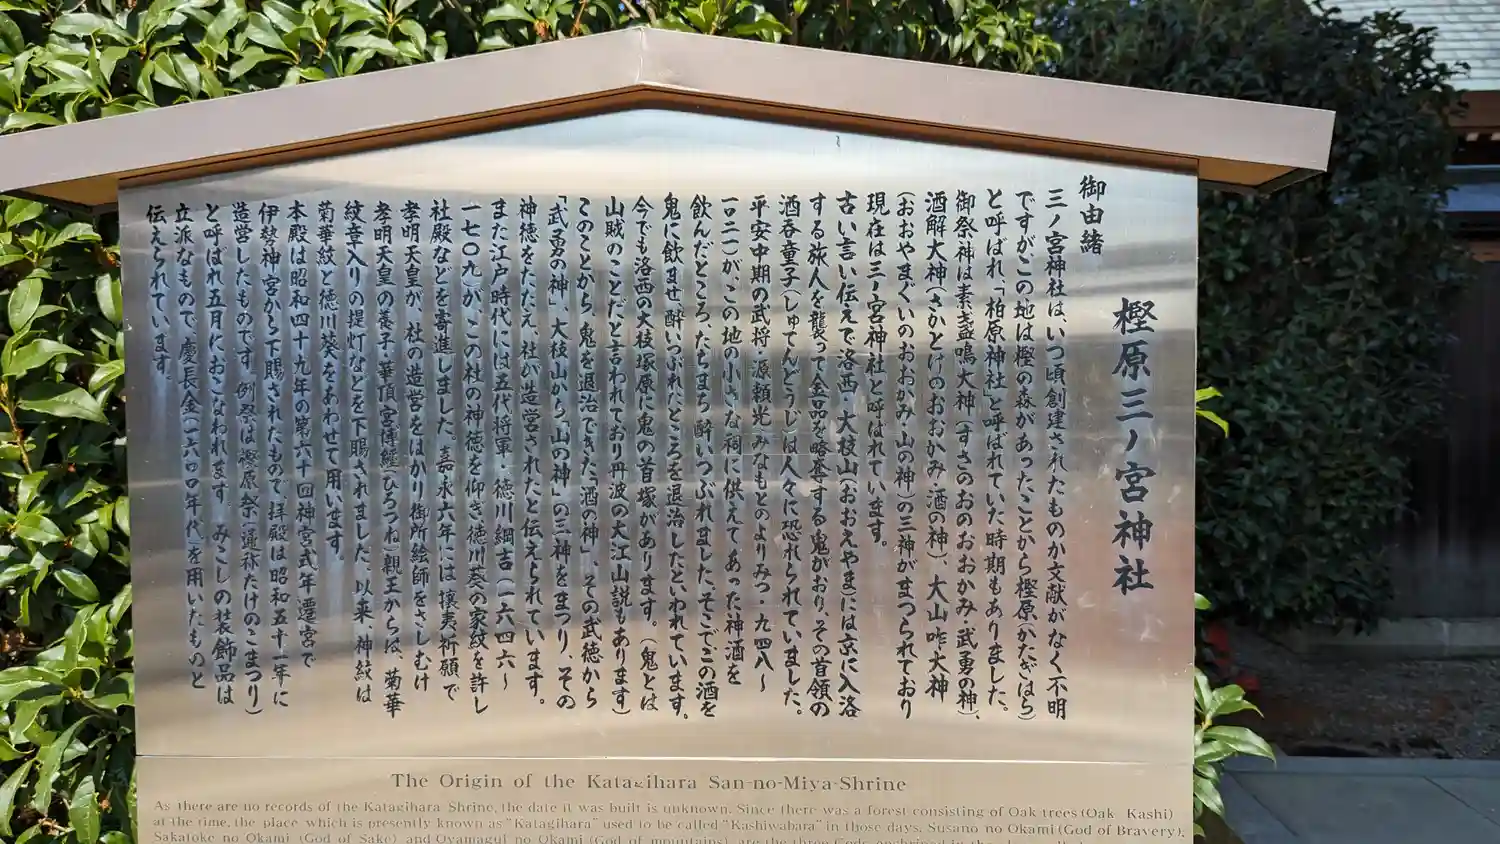 御由緒
樫原三ノ宮神社
三ノ宮神社は、いつ頃創建されたものか文献がなく不明
ですがこの地は樫の森があったことから樫原(かたぎはら)
と呼ばれ、「柏原神社」と呼ばれていた時期もありました。
御祭神は素盞鳴大神(すさのおのおおかみ・武勇の神)、
酒解大神(さかとけのおおかみ・酒の神)、大山咋大神
(おおやまぐいのおおかみ・山の神)の三神がまつられており
現在は三ノ宮神社と呼ばれています。
古い言い伝えで洛西・大枝山(おおえやま)には京に入洛
する旅人を襲って金品を略奪する鬼がおり、その首領の
酒呑童子(しゅてんどうじ)は人々に恐れられていました。
平安中期の武将・源頼光(みなもとのよりみつ・九四八〜
一〇二一)がこの地の小さな祠に供えてあった神酒を
飲んだところ、たちまち酔いつぶれました。そこでこの酒を
鬼に飲ませ、酔いつぶれたところを退治したといわれています。
今でも洛西の大枝塚原に鬼の首塚があります。(鬼とは
山賊のことだと言われており丹波の大江山説もあります)
このことから、鬼を退治できた「酒の神」、その武徳から
「武勇の神」、大枝山から「山の神」の三神をまつり、その
神徳をたたえ、社が造営されたと伝えられています。
また江戸時代には五代将軍・徳川綱吉(一六四六〜
一七〇九)が、この社の神徳を仰ぎ徳川葵の家紋を許し
社殿などを寄進しました。嘉永六年には攘夷祈願で
孝明天皇が、社の造営をはかり御所絵師をさしむけ
孝明天皇の養子・華頂宮博経(ひろつね)親王からは、菊華
紋章入りの提灯などを下賜されました。以来、神紋は
菊華紋と徳川葵をあわせて用います。
本殿は昭和四十九年の第六十回神宮式年遷宮で
伊勢神宮から下賜されたもので、拝殿は昭和五十一年に
造営したものです。例祭は樫原祭(通称たけのこまつり)
と呼ばれ五月におこなわれます。みこしの装飾品は
立派なもので、慶長金(一六〇〇年代)を用いたものと
伝えられています。
The Origin of the Katagihara San-no-Miya-Shrine
As there are no records of the Katagihara Shrine, the date it was built is unknown. Since there was a forest consisting of Oak trees (Oak Kashi)
at the time, the place which is presently known as "Katagihara" used to be called "Kashiwabara" in those days. Susano no Okami (God of Bravery),
Sakatoke no Okami (God of Sake) and Oyamagui no Okami (God of mountains) are the three Gods enshrined in the